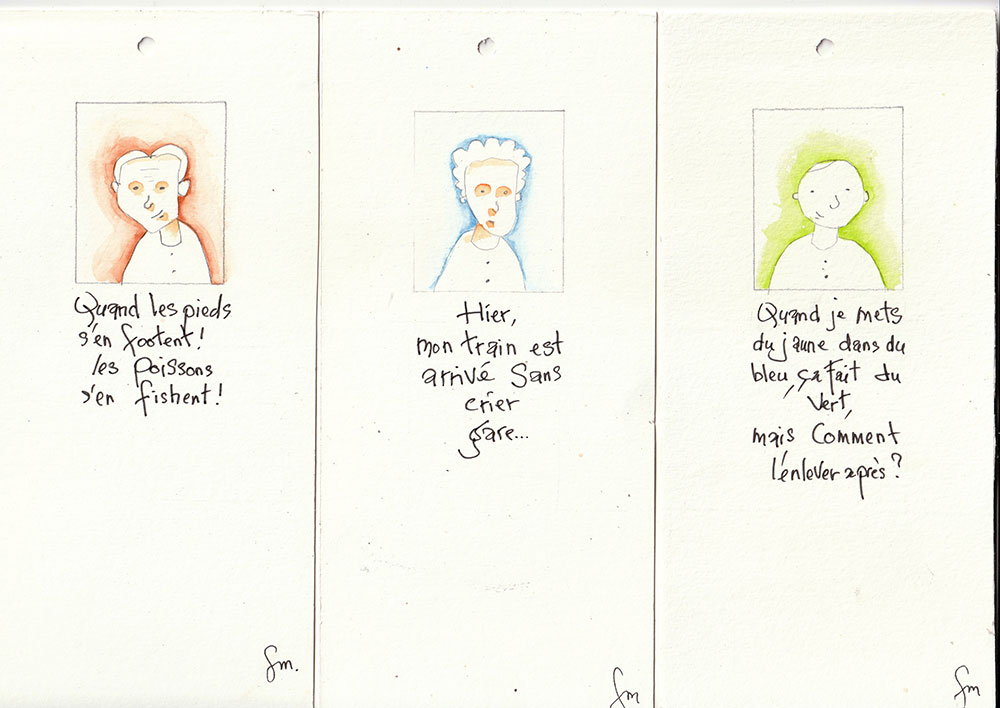 Quand les pieds
s'en footent!
les poissons
s'en fishent!
Sm.
Hier,
mon train est
arrivé sans
crier
gare...
Sm
Quand je mets
du jaune dans du
bleu, ça fait du
vert,
mais comment
l'enlever après?
Sm